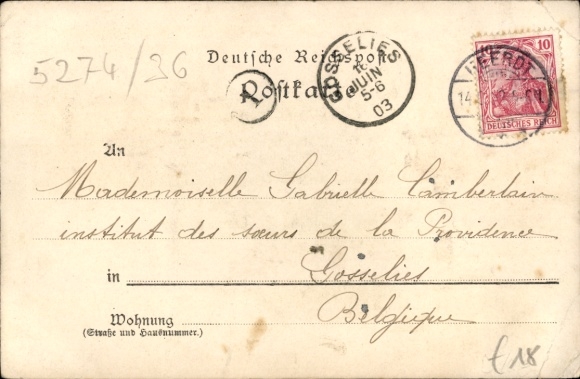 5274/36
Deutsche Reichspost
Postkarte
GOSSELIES
JUIN
5-6
03
10
DEUTSCHES REICH
HEERDT
14
An
Mademoiselle Gabrielle Camberlain
institut des sœurs de la Providence
in Gosselies
Belgique
Wohnung
(Straße und Hausnummer.)
€18